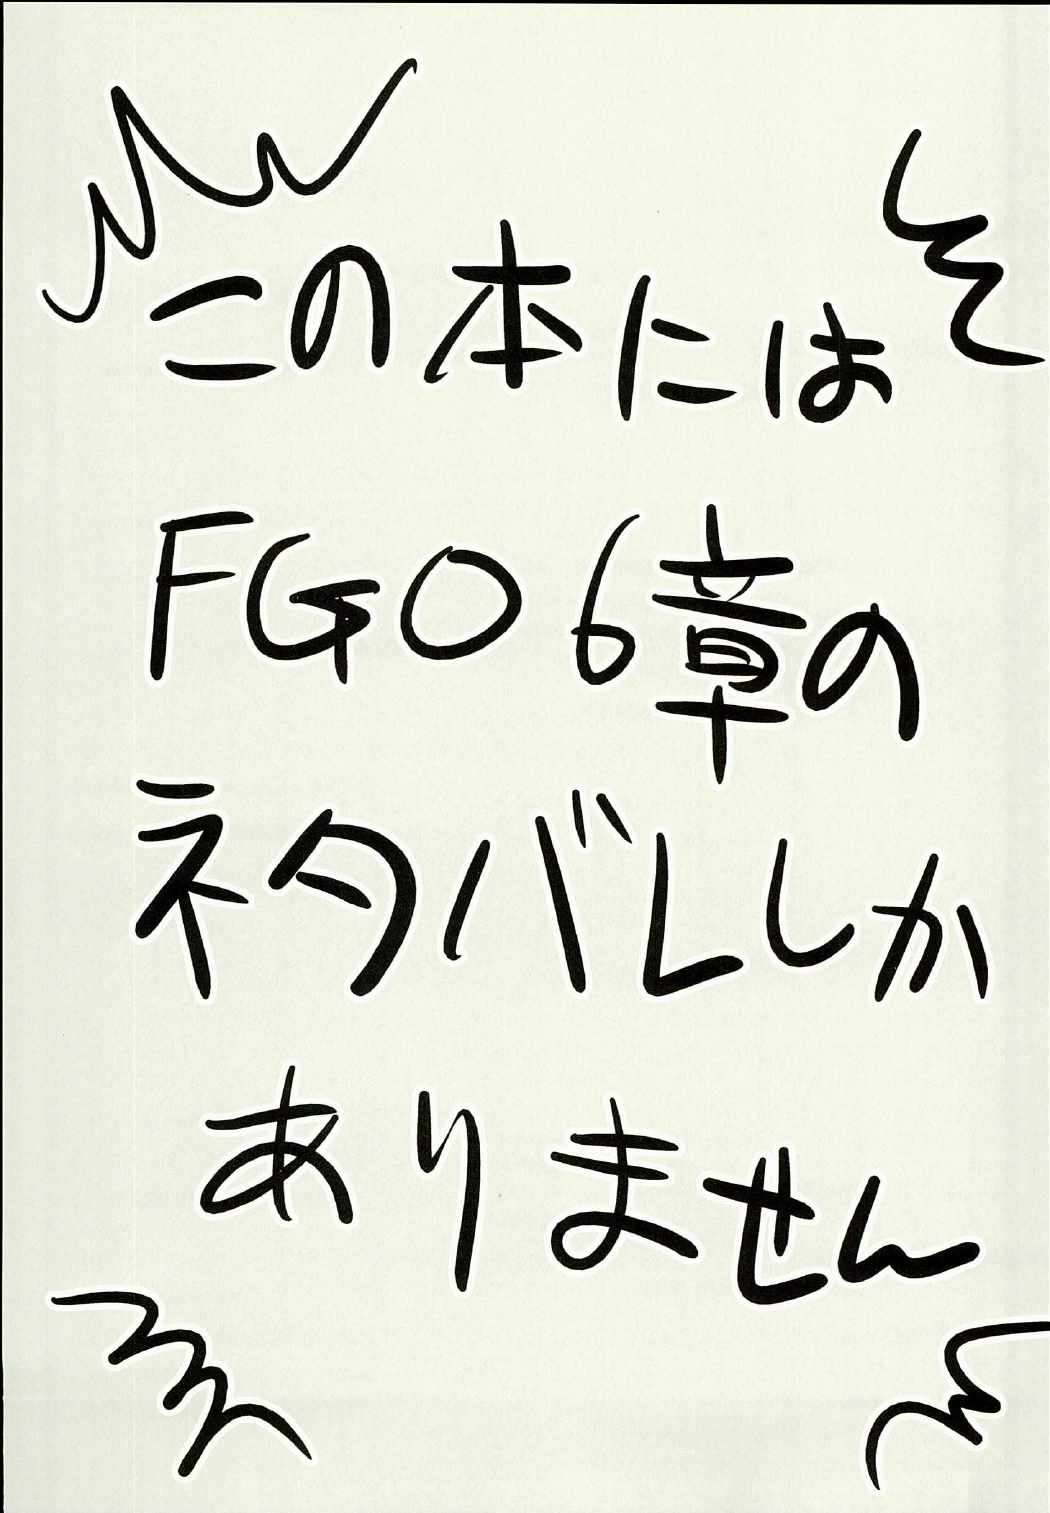 この本には
FGO6章の
ネタバレしか
ありません